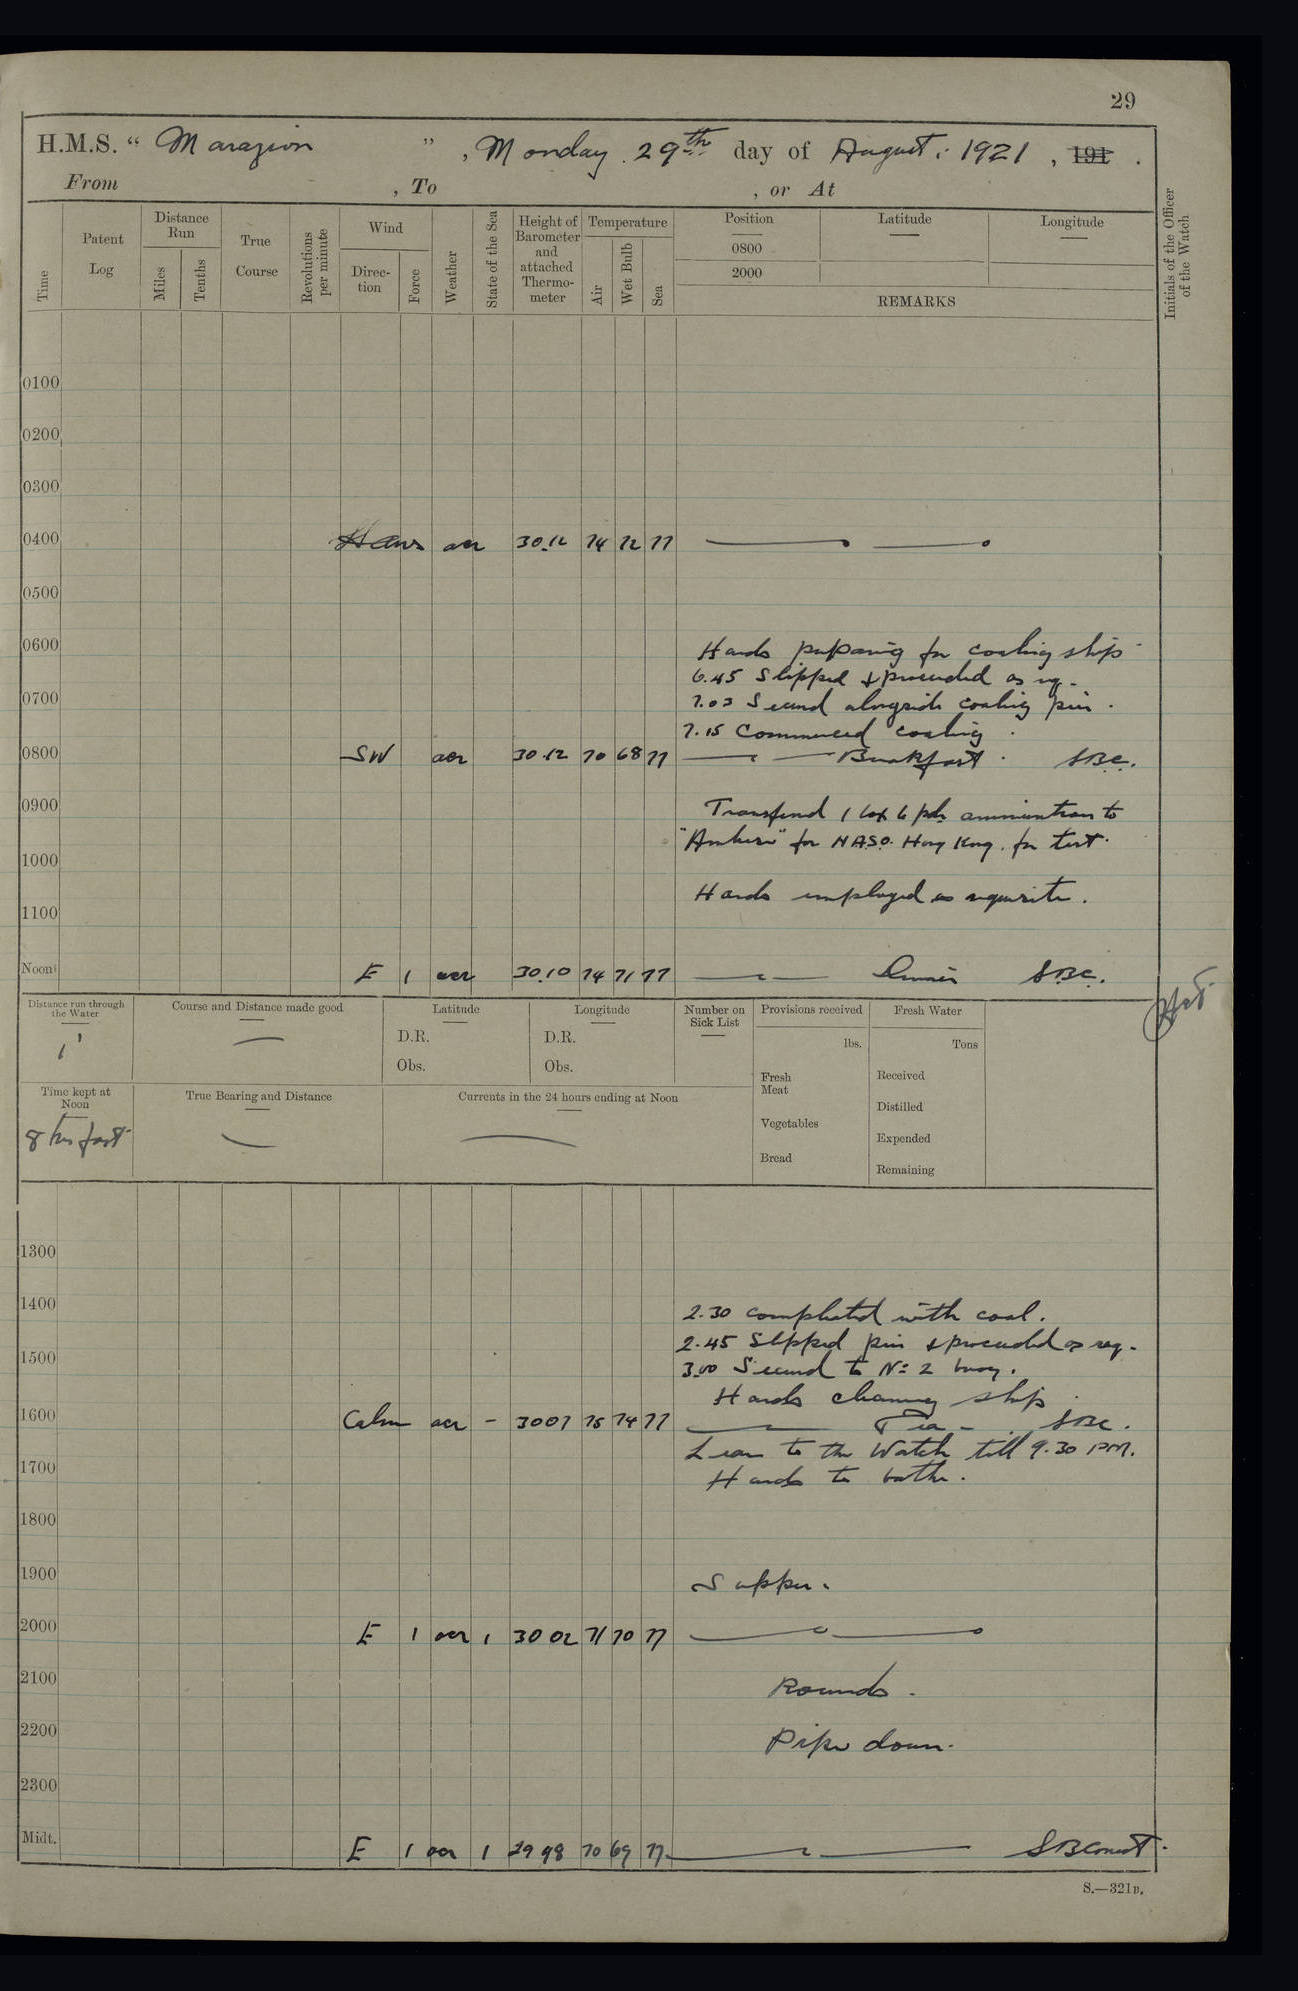 29
H.M.S. “ Marazion ” , Monday 29th day of August: 1921 , 191 .
From , To , or At
Time Patent Log Distance Run Miles Tenths True Course Revolutions per minute Wind Direc-tion Force Weather State of the Sea Height of Barometer and attached Thermo-meter Temperature Air Wet Bulb Sea Position Latitude Longitude Initials of the Officer of the Watch
0800
2000
REMARKS
0100
0200
0300
0400 30.12 74 72 77
0500
0600 Hands preparing for coaling ship
6.45 Slipped & proceeded as req.
0700 7.03 Secured alongside coaling pier.
7.15 Commenced coaling.
0800 SW ocr 30.12 70 68 77 Breakfast. SBC.
0900 Transferred 1 box 6 pdr ammunition to
for N.A.S.O. Hong Kong. for test.
1000
Hands employed as requisite.
1100
Noon E 1 ocr 30.10 74 71 77 Dinner SBC.
Distance run through the Water Course and Distance made good Latitude Longitude Number on Sick List Provisions received Fresh Water
1' D.R. D.R. lbs. Tons
Obs. Obs. Fresh Meat Received
Time kept at Noon True Bearing and Distance Currents in the 24 hours ending at Noon Distilled
8 hrs fast Vegetables Expended
Bread Remaining
1300
1400 2.30 completed with coal.
2.45 Slipped pier & proceeded as req.
1500 3.00 Secured to No 2 buoy.
Hands cleaning ship
1600 Calm ocr - 30 07 75 74 77 Tea - SBC.
Leave to the Watch till 9.30 PM.
1700 Hands to bathe.
1800
1900 Supper.
2000 E 1 ocr 1 30 02 71 70 77
2100 Rounds.
2200 Pipe down.
2300
Midt. E 1 ocr 1 29 98 70 69 77
S.—321B.